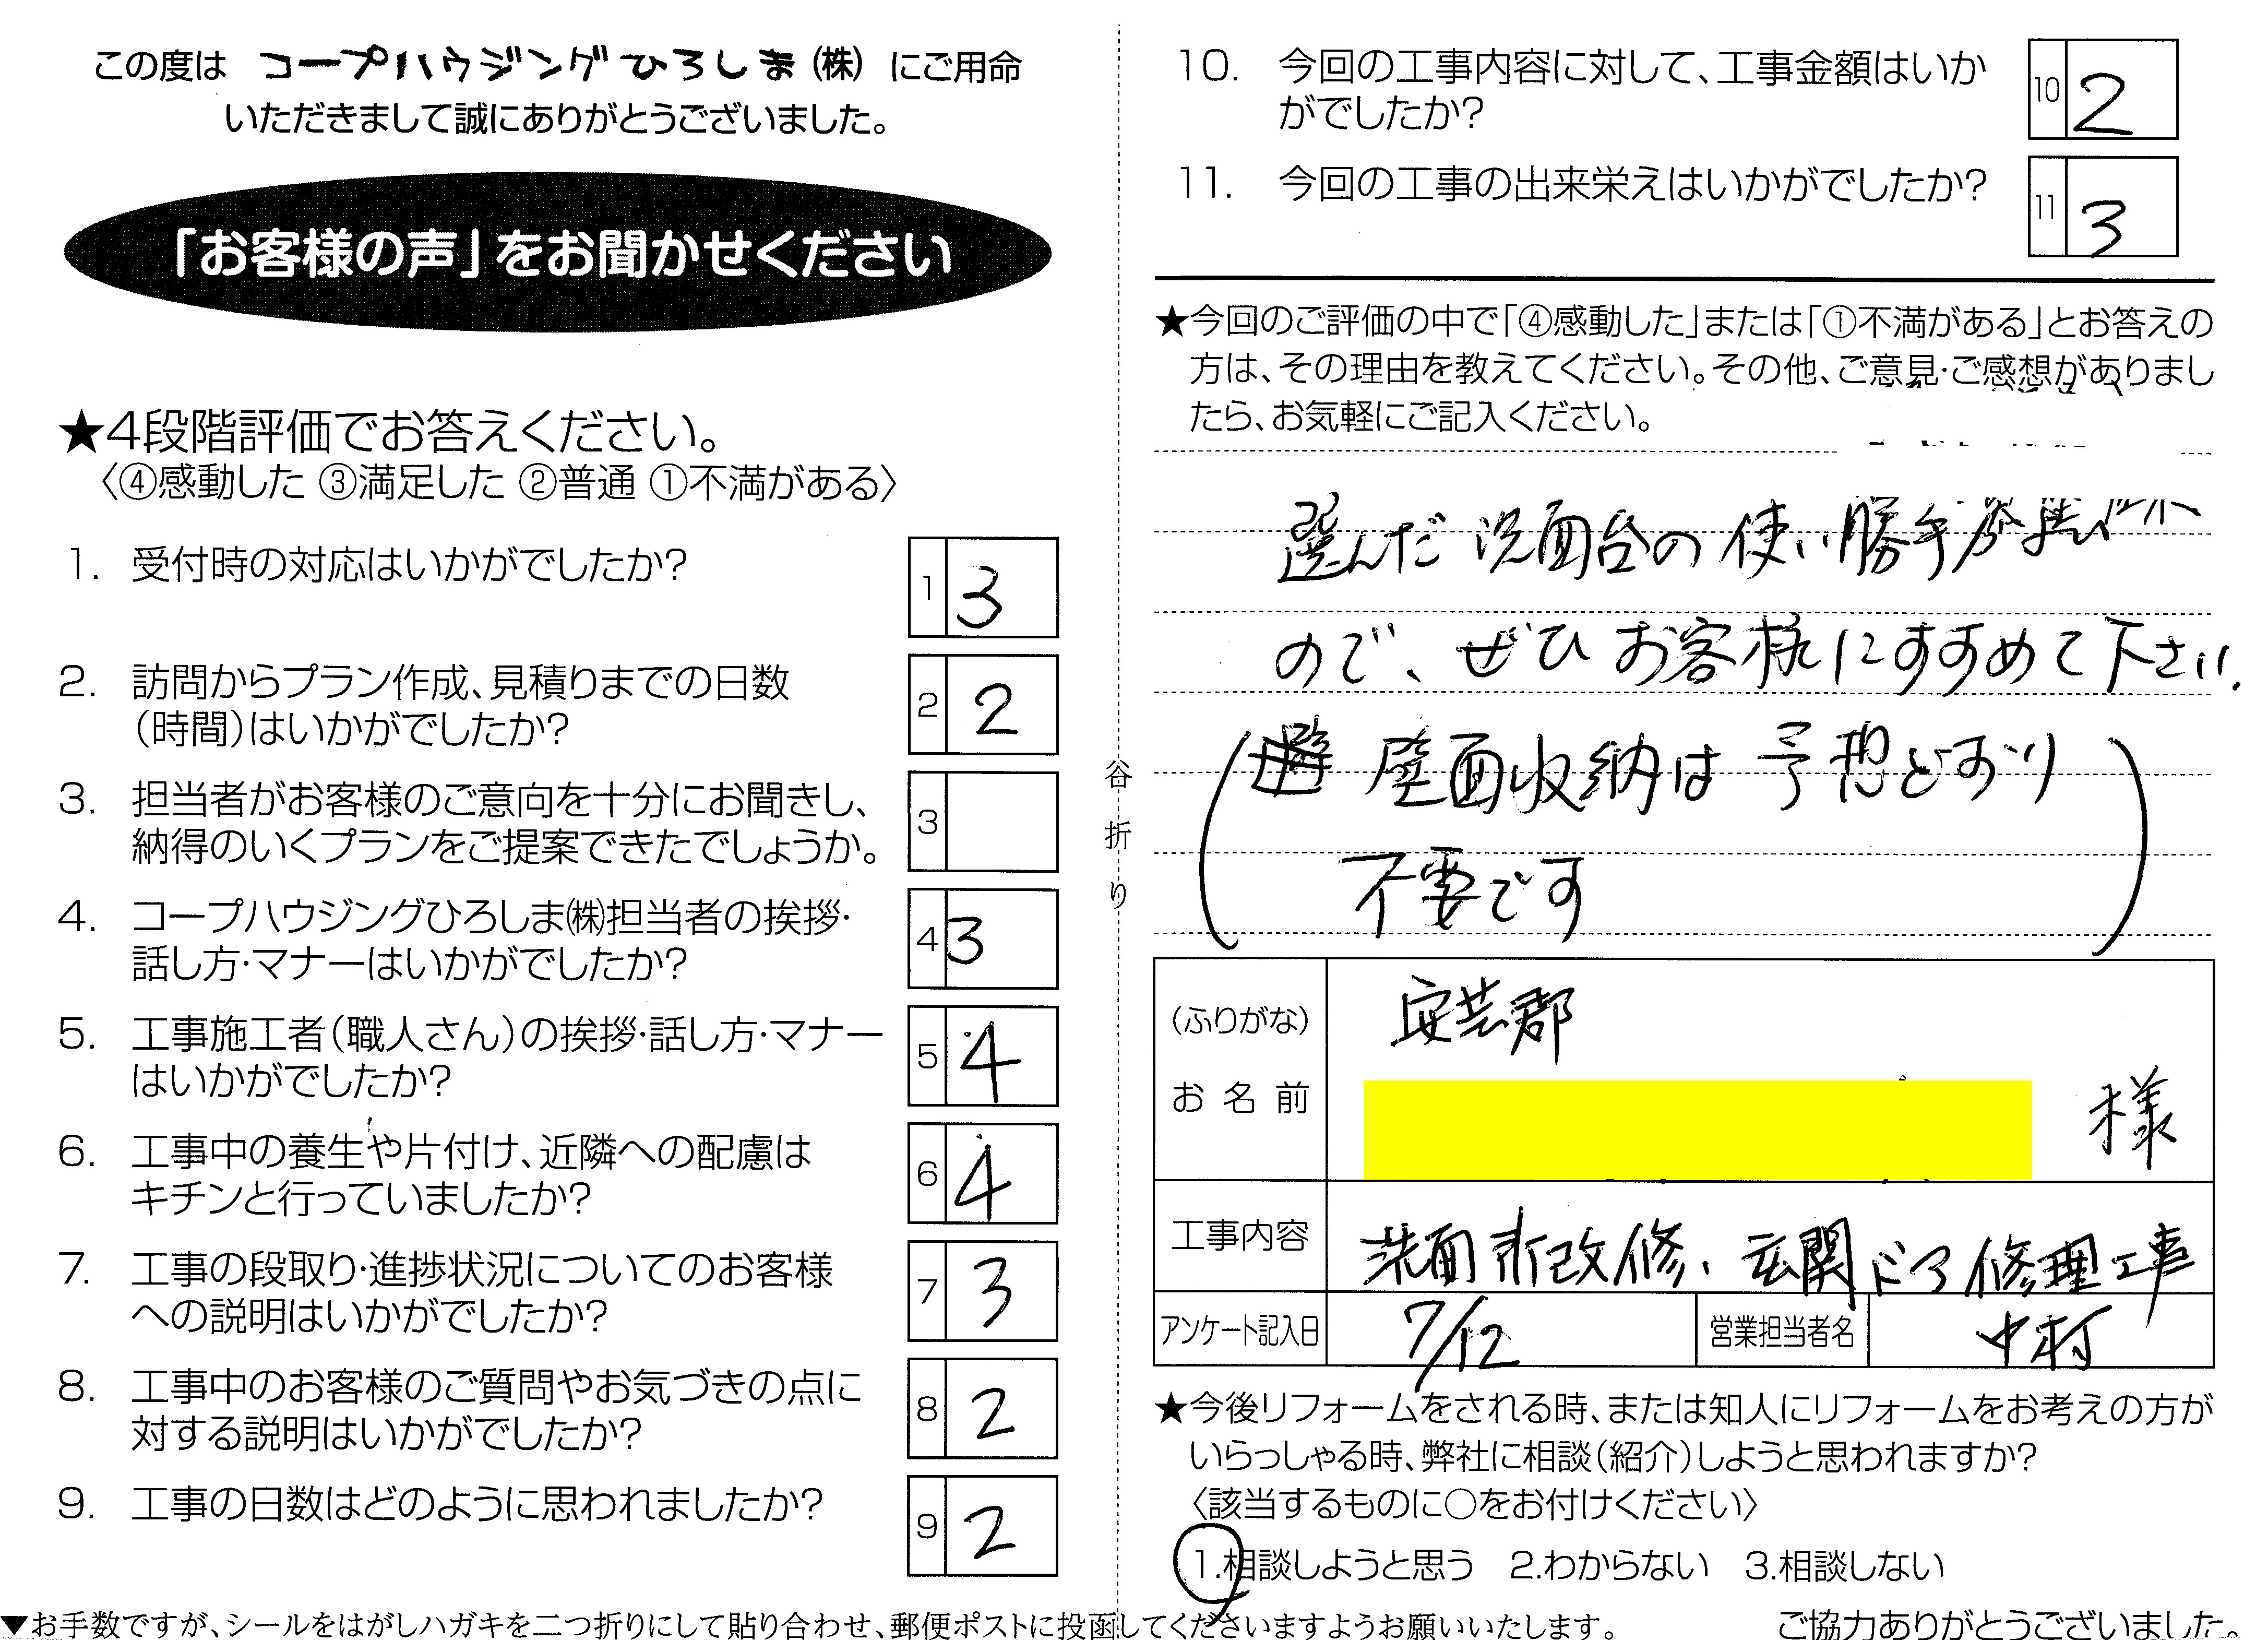 この度は コープハウジングひろしま(株) にご用命
いただきまして誠にありがとうございました。
「お客様の声」をお聞かせください
★4段階評価でお答えください。
〈④感動した ③満足した ②普通 ①不満がある〉
1. 受付時の対応はいかがでしたか?
1 3
2. 訪問からプラン作成、見積りまでの日数
(時間)はいかがでしたか?
2 2
3. 担当者がお客様のご意向を十分にお聞きし、
納得のいくプランをご提案できたでしょうか。
3
4. コープハウジングひろしま㈱担当者の挨拶・
話し方・マナーはいかがでしたか?
4 3
5. 工事施工者(職人さん)の挨拶・話し方・マナー
はいかがでしたか?
5 4
6. 工事中の養生や片付け、近隣への配慮は
キチンと行っていましたか?
6 4
7. 工事の段取り・進捗状況についてのお客様
への説明はいかがでしたか?
7 3
8. 工事中のお客様のご質問やお気づきの点に
対する説明はいかがでしたか?
8 2
9. 工事の日数はどのように思われましたか?
9 2
▼お手数ですが、シールをはがしハガキを二つ折りにして貼り合わせ、郵便ポストに投函してくださいますようお願いいたします。
谷折り
10. 今回の工事内容に対して、工事金額はいか
がでしたか?
10 2
11. 今回の工事の出来栄えはいかがでしたか?
11 3
★今回のご評価の中で「④感動した」または「①不満がある」とお答えの
方は、その理由を教えてください。その他、ご意見・ご感想がありまし
たら、お気軽にご記入ください。
選んだ洗面台の使い勝手が
ので、ぜひお客様にすすめて下さい.
(壁面収納は予想どおり
不要です)
(ふりがな)
お名前
安芸郡
様
工事内容
洗面所改修、玄関ドア修理工事
アンケート記入日
7/12
営業担当者名
中村
★今後リフォームをされる時、または知人にリフォームをお考えの方が
いらっしゃる時、弊社に相談(紹介)しようと思われますか?
〈該当するものに○をお付けください〉
1.相談しようと思う 2.わからない 3.相談しない
ご協力ありがとうございました。